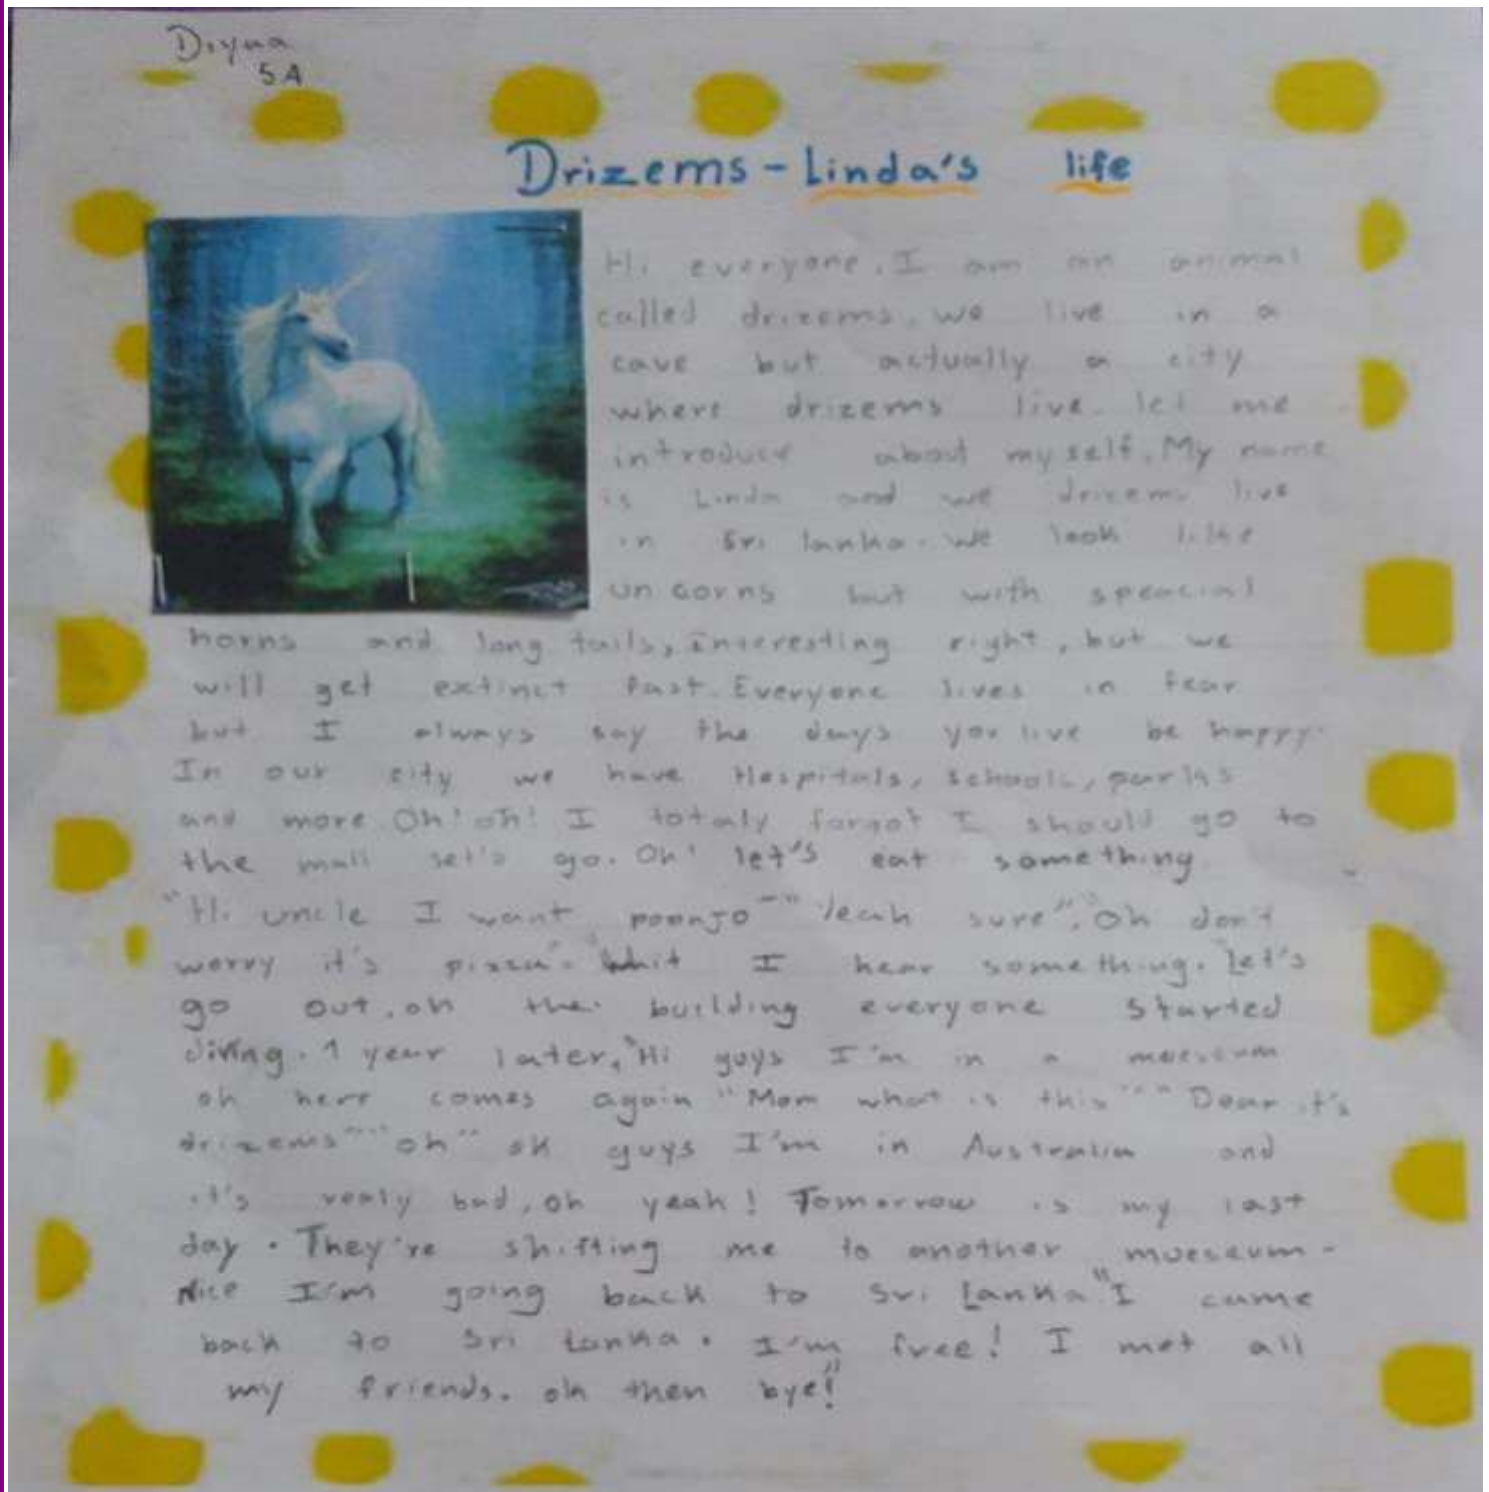 Diyna
5A
Drizems - Linda's life
Hi everyone, I am an animal
called drizems, we live in a
cave but actually a city
where drizems live. let me
introduce about myself. My name
is Linda and we drizems live
in Sri lanka. we look like
unicorns but with speacial
horns and long tails, interesting right, but we
will get extinct fast. Everyone lives in fear
but I always say the days you live be happy.
In our city we have Hospitals, schools, parks
and more Oh! oh! I totaly forgot I should go to
the mall let's go. Oh! let's eat something
"Hi uncle I want poonjo" "Yeah sure". "Oh don't
worry it's pizza". Wait I hear something. "Let's
go out, oh the building everyone started
diving. 1 year later, "Hi guys I'm in a
oh here comes again "Mom what is this" "Dear it's
drizems" "oh" ok guys I'm in Australia and
it's realy bad, oh yeah! Tomorrow is my last
day. They're shifting me to another mueseum.
Nice I'm going back to Sri Lanka" I came
back to Sri Lanka. I'm free! I met all
my friends. ok then bye!"